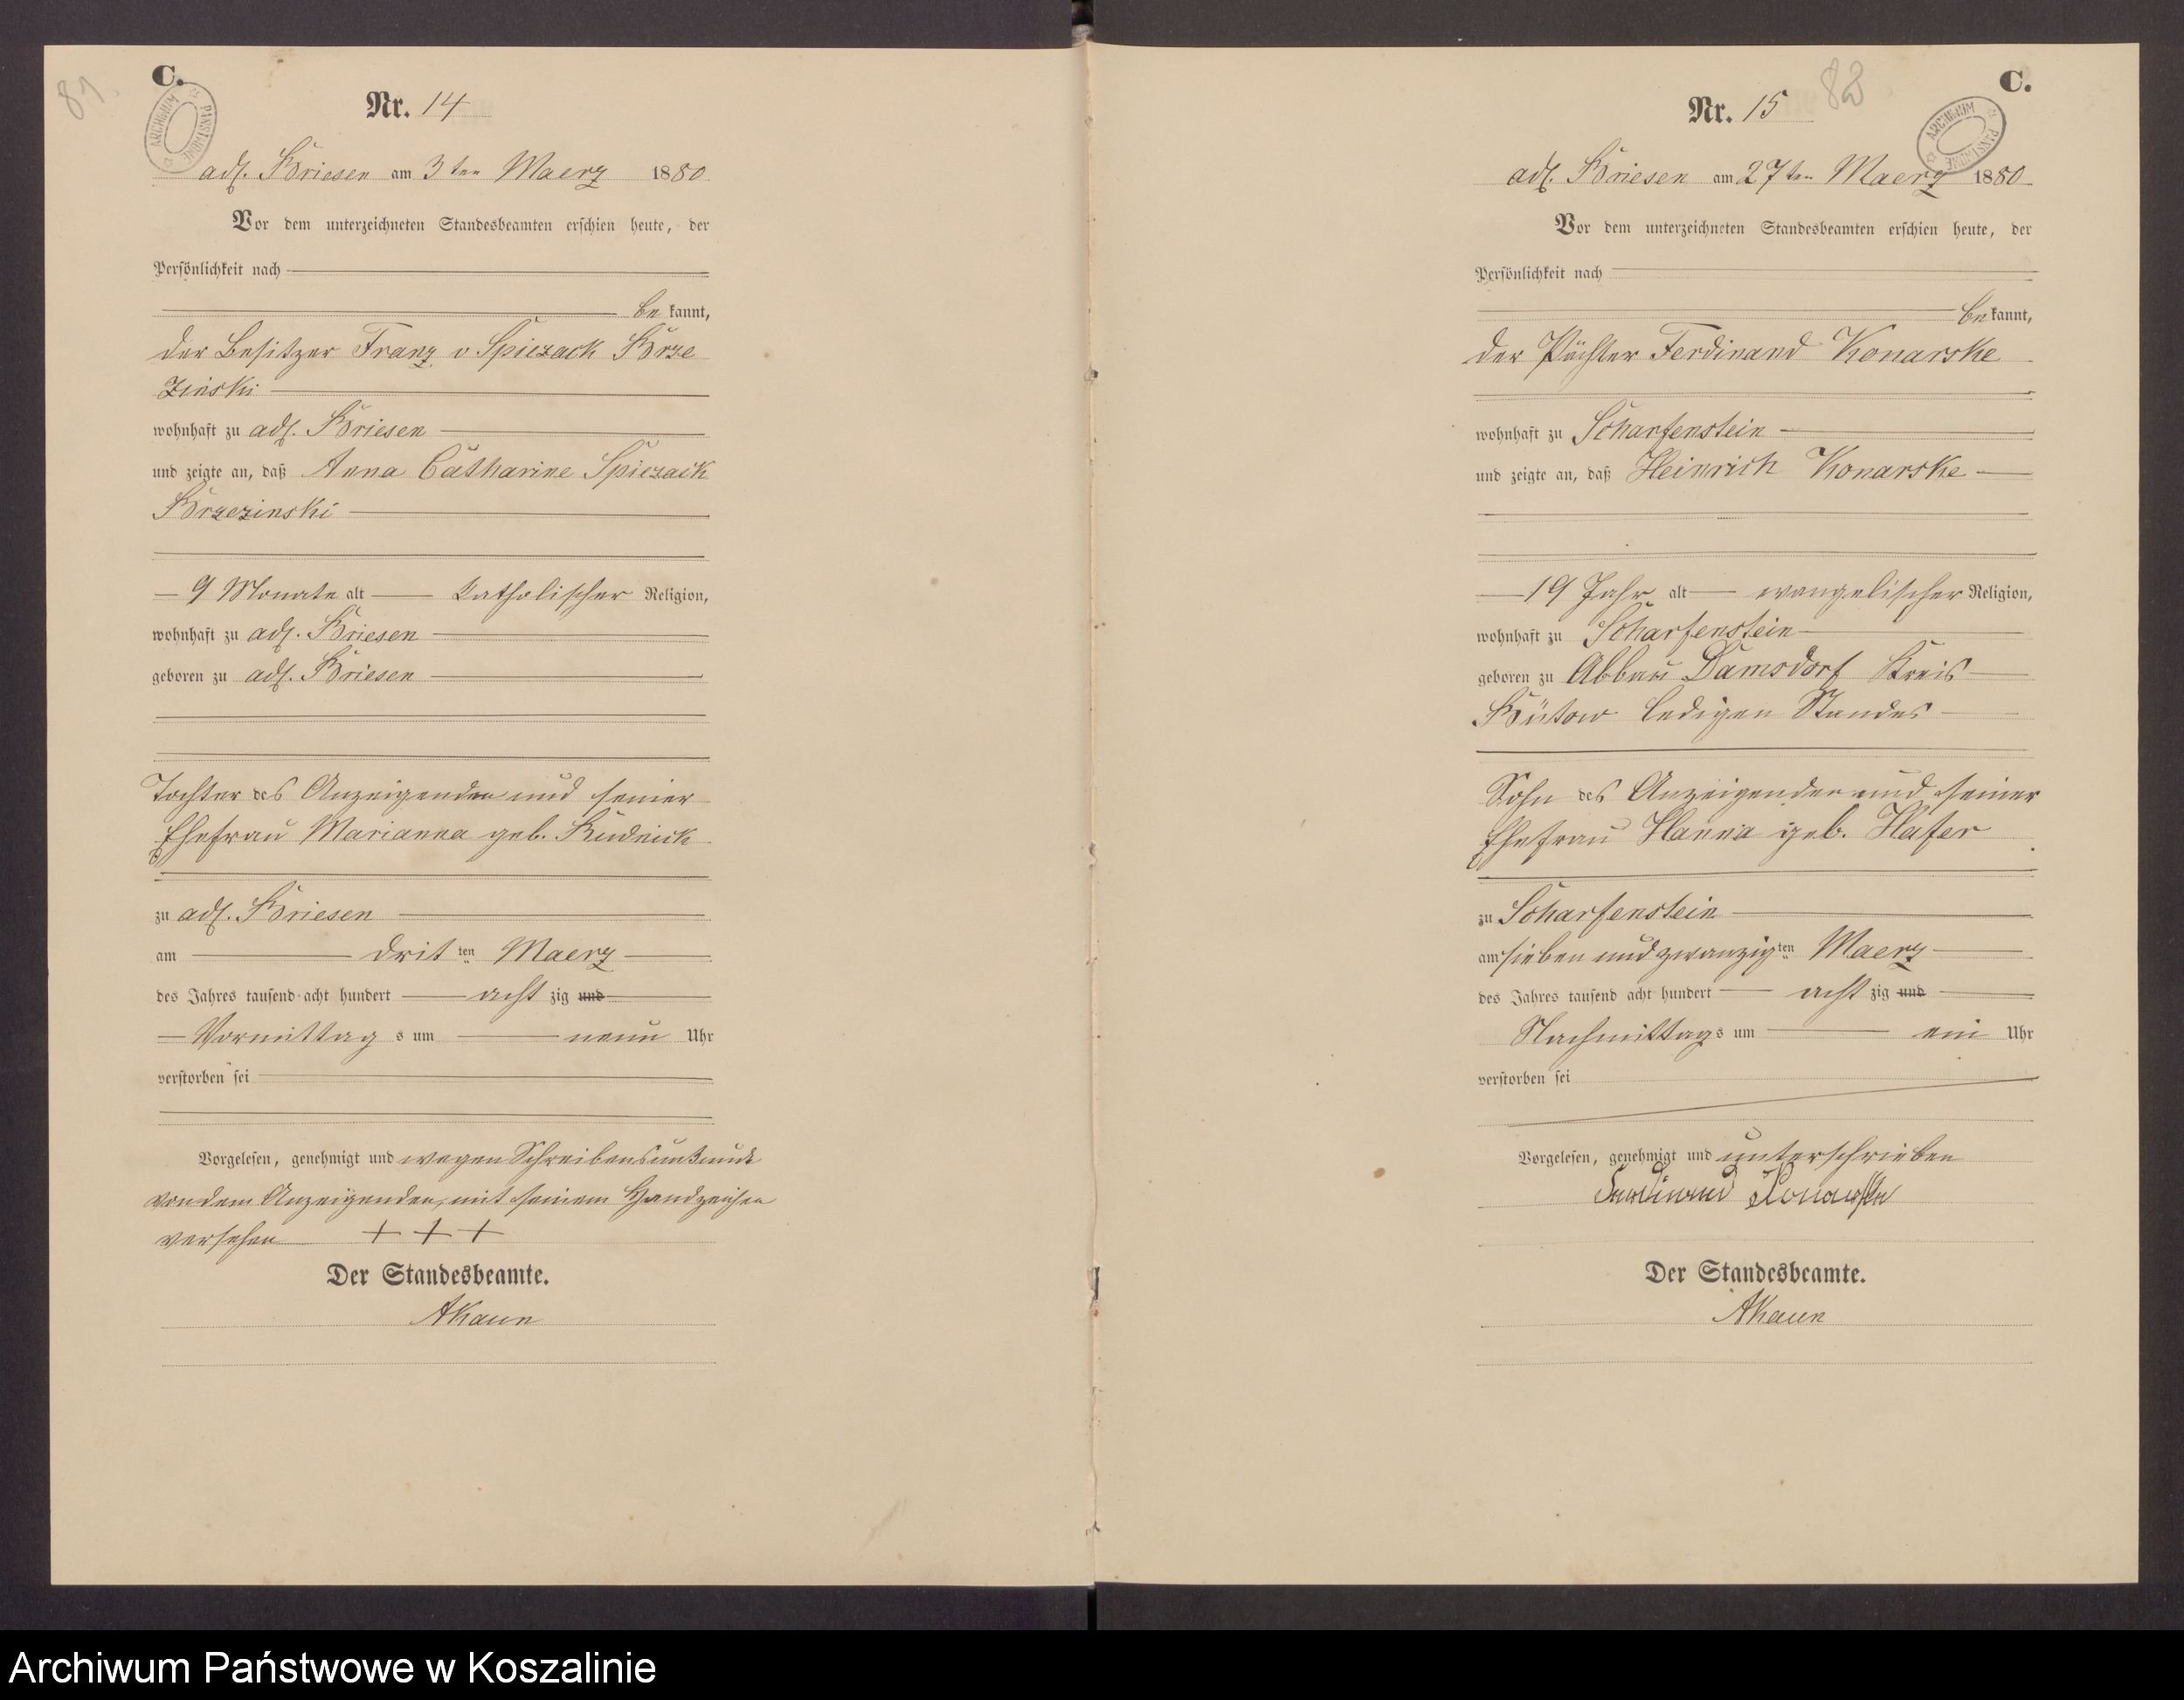 81.
C.
ARCHIWUM PAŃSTWOWE
Nr. 14
adl. Briesen am 3ten Maerz 1880
Vor dem unterzeichneten Standesbeamten erschien heute, der
Persönlichkeit nach
be kannt,
der Besitzer Franz v Spiczack Brze
zinski
wohnhaft zu adl. Briesen
und zeigte an, daß Anna Catharine Spiczack
Brzezinski
9 Monate alt katholischer Religion,
wohnhaft zu adl. Briesen
geboren zu adl. Briesen
Tochter des Anzeigenden und seiner
Ehefrau Marianna geb. Rudnick
zu adl. Briesen
am drit ten Maerz
des Jahres tausend acht hundert acht zig und
Vormittag s um neun Uhr
verstorben sei
Vorgelesen, genehmigt und wegen Schreibensunkunde
von dem Anzeigenden, mit seinem Handzeichen
versehen + + +
Der Standesbeamte.
AKaun
82
C.
ARCHIWUM PAŃSTWOWE
Nr. 15
adl. Briesen am 27ten Maerz 1880
Vor dem unterzeichneten Standesbeamten erschien heute, der
Persönlichkeit nach
be kannt,
der Pächter Ferdinand Konarske
wohnhaft zu Scharfenstein
und zeigte an, daß Heinrich Konarske
19 Jahr alt evangelischer Religion,
wohnhaft zu Scharfenstein
geboren zu Abbau Damsdorf Kreis
Bütow ledigen Standes
Sohn des Anzeigenden und seiner
Ehefrau Hanna geb. Hafer
zu Scharfenstein
am sieben und zwanzig ten Maerz
des Jahres tausend acht hundert acht zig und
Nachmittag s um ein Uhr
verstorben sei
Vorgelesen, genehmigt und unterschrieben
Ferdinand Konarske
Der Standesbeamte.
AKaun
Archiwum Państwowe w Koszalinie